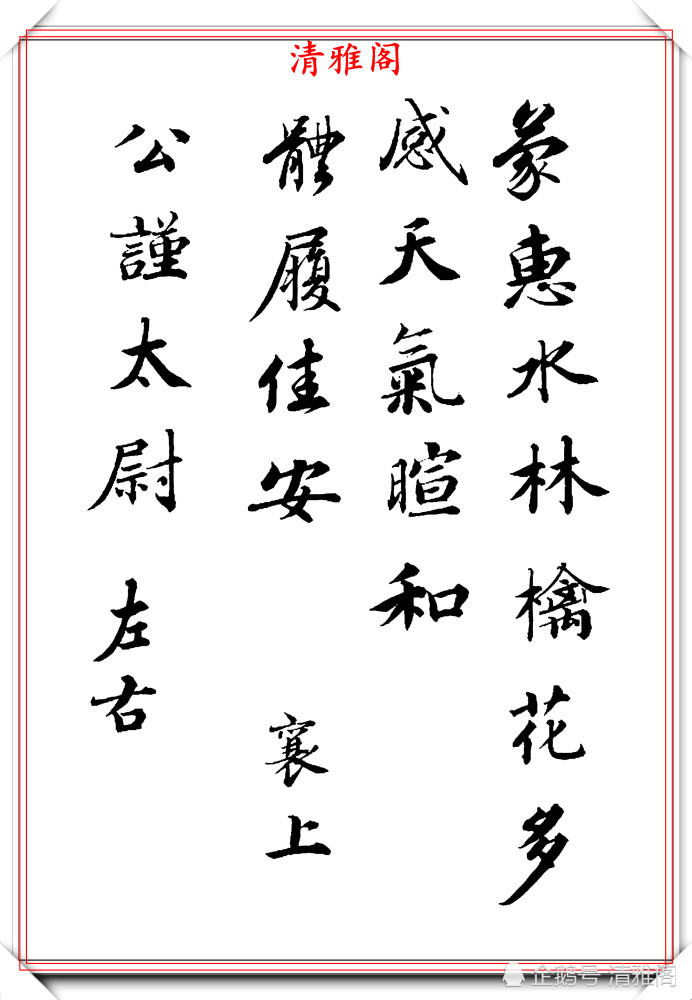 清雅阁
蒙惠水林檎花多
感天氣暄和
體履佳安 襄上
公謹太尉 左右
企鹅号 清雅阁